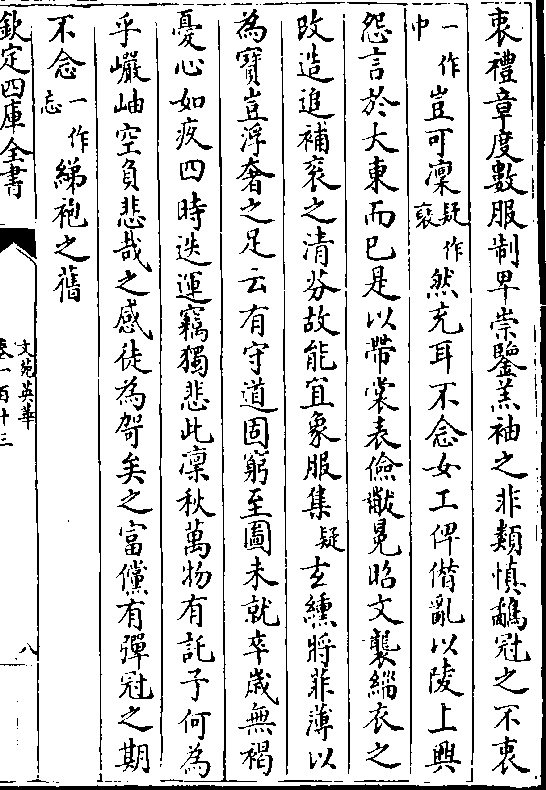 衷禮章度數服制卑崇鑒羔袖之非類慎鷸冠之不衷
一作中豈可凜疑作褎然充耳不念女工俾僭亂以陵上興
怨言於大東而巳是以帶裳表儉黻冕昭文襲緇衣之
改造追補袞之清芬故能宜象服集疑玄纁將菲薄以
為寶豈浮奢之足云有守道固窮至圖未就卒歲無褐
憂心如疚四時迭運竊獨悲此凜秋萬物有託子何為
乎巖岫空負悲哉之感徒為哿矣之富儻有彈冠之期
不念一作忘綈袍之舊
欽定四庫全書
文苑英華
卷一百十三
八